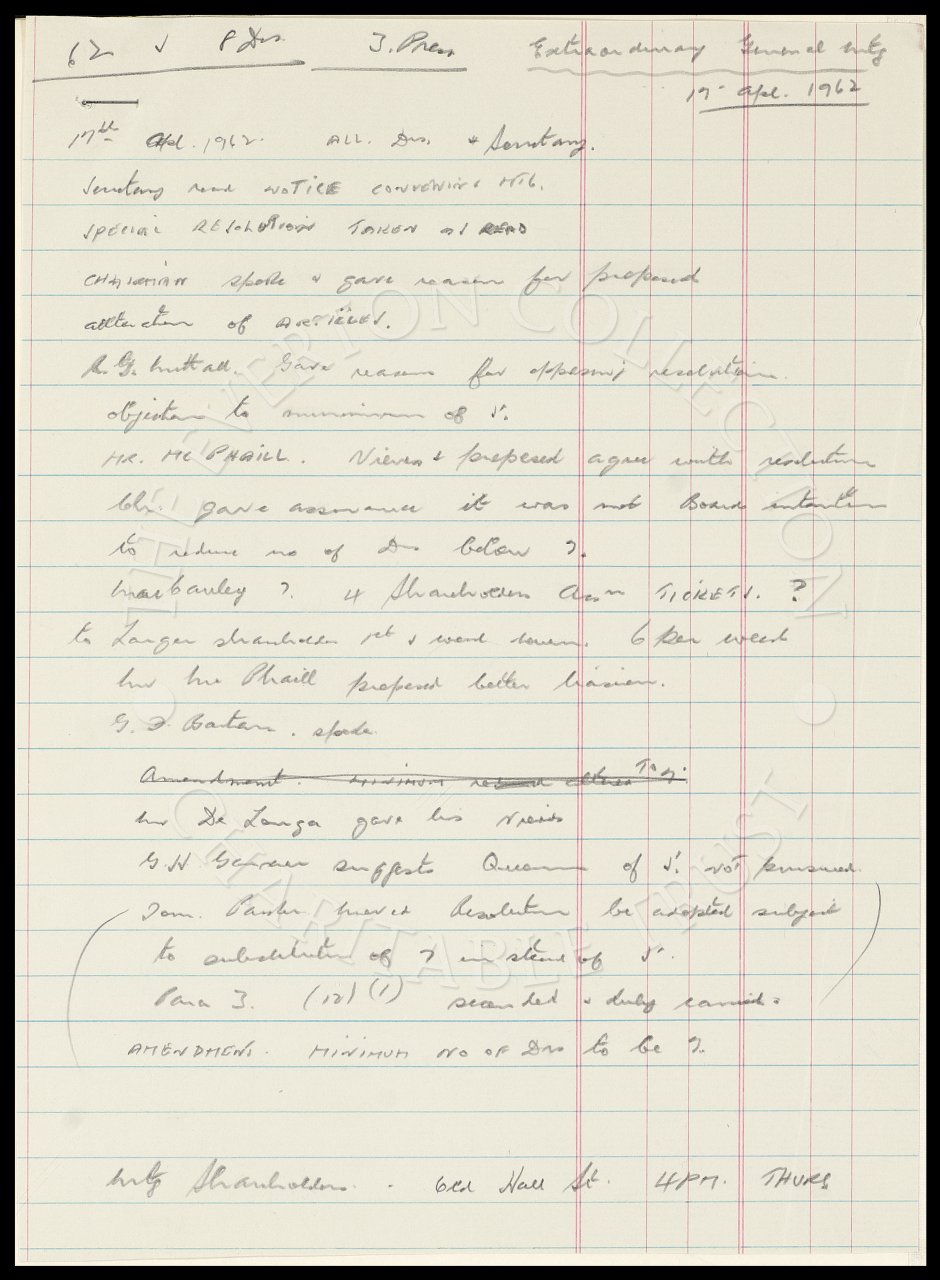 62 & 8 Drs. 3. Press Extraordinary General Mtg
17 Apl. 1962
17th Apl. 1962. ALL. Drs. + Secretary.
Secretary read NOTICE CONVENING MTG.
SPECIAL RESOLUTION TAKEN AS READ
CHAIRMAN spoke & gave reason for proposed
alteration of ARTICLES.
R.G. Nuttall. Gave reasons for opposing resolution.
objection to minimum of 5.
MR. MC PHAILL. Views & proposed agree with resolution
Ch. gave assurance it was not Boards intention
to reduce no of Drs below 7.
7. 4 Shareholders Assn TICKETS. ?
to Larger shareholders 1st & 6 per week
Mr Mc Phaill proposed better liasion.
G. D. spoke
Amendment. MINIMUM altered TO 7.
Mr De Longa gave his views
G.H suggests Quorum of 5. NOT pursued.
Tom. moved Resolution be adopted subject
to substitution of 7 in stead of 5.
Para 3. (12) (1) seconded & duly carried.
AMENDMENT. MINIMUM NO OF Drs to be 7.
Mtg Shareholders. Old Hall St. 4 PM. THURS
THE EVERTON COLLECTION
CHARITABLE TRUST